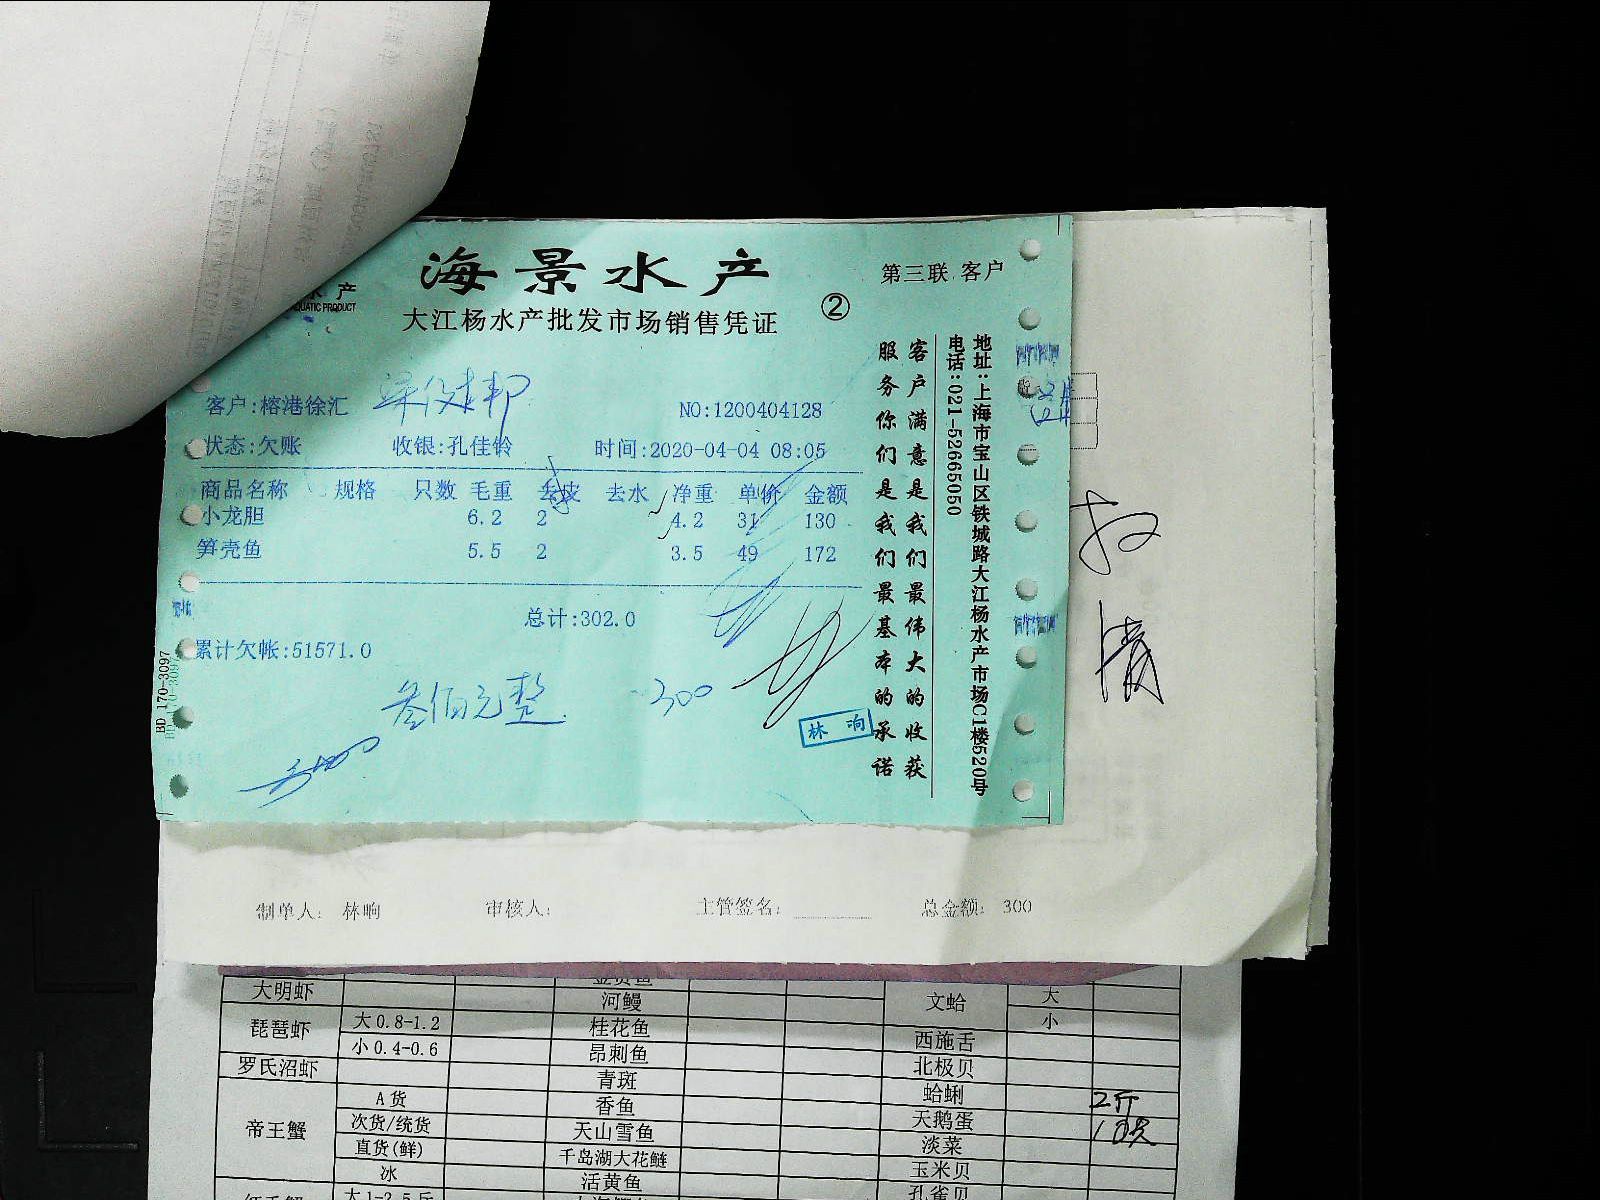 海景水产
大江杨水产批发市场销售凭证
②
第三联 客户
水产
AQUATIC PRODUCT
客户:榕港徐汇
NO:1200404128
状态:欠账 收银:孔佳铃 时间:2020-04-04 08:05
商品名称 规格 只数 毛重 去皮 去水 净重 单价 金额
小龙胆 6.2 2 4.2 31 130
笋壳鱼 5.5 2 3.5 49 172
总计:302.0
累计欠帐:51571.0
叁佰元整 300
林响
客户满意是我们最伟大的收获
服务你们是我们最基本的承诺
地址:上海市宝山区铁城路大江杨水产市场C1楼520号
电话:021-52665050
BD 170-3097
制单人: 林响 审核人: 主管签名: 总金额: 300
大明虾 河鳗 文蛤 大
小
琵琶虾 大0.8-1.2 桂花鱼
小0.4-0.6 昂刺鱼 西施舌
罗氏沼虾 青斑 北极贝
帝王蟹 A货 香鱼 蛤蜊 2斤
次货/统货 天山雪鱼 天鹅蛋
直货(鲜) 千岛湖大花鲢 淡菜
冰 活黄鱼 玉米贝
大1-2.5斤 孔雀贝